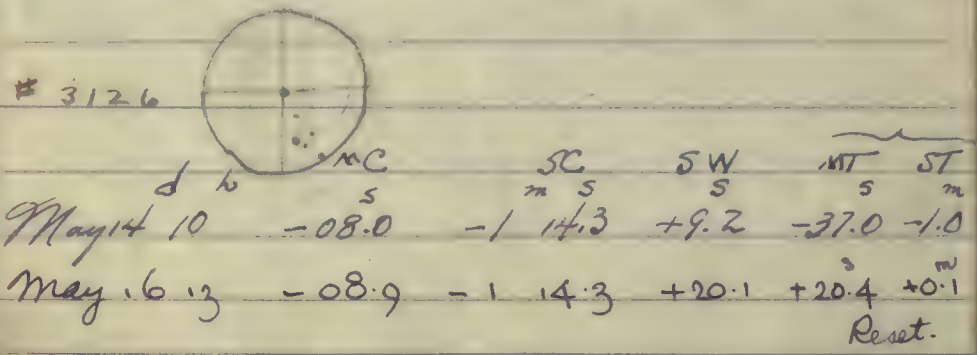 # 3126
MC SC SW MT ST
d h s m s s s m
May 14 10 -08.0 -1 14.3 +9.2 -37.0 -1.0
May 16 13 -08.9 -1 14.3 +20.1 +20.4 s +0.1 m
Reset.